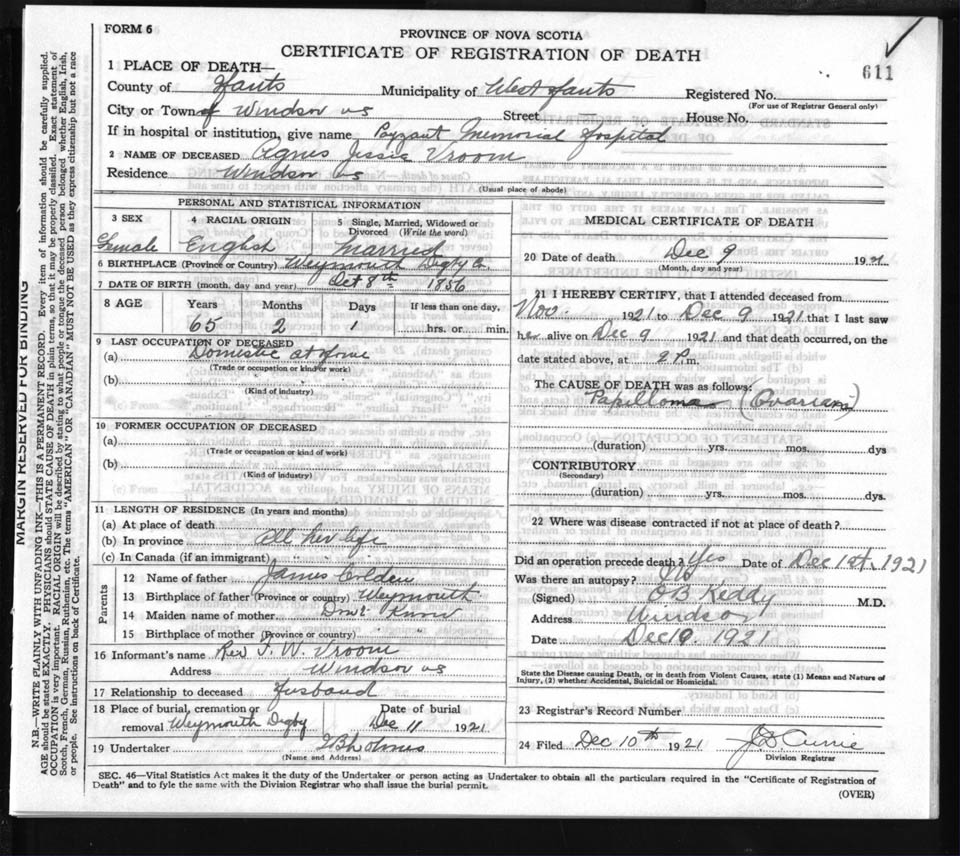 FORM 6
PROVINCE OF NOVA SCOTIA
CERTIFICATE OF REGISTRATION OF DEATH
611
1 PLACE OF DEATH—
County of Hants Municipality of West Hants Registered No.
(For use of Registrar General only)
City or Town of Windsor NS Street House No.
If in hospital or institution, give name Payzant Memorial Hospital
2 NAME OF DECEASED Agnes Jessie Vroom
Residence Windsor NS
(Usual place of abode)
PERSONAL AND STATISTICAL INFORMATION
3 SEX 4 RACIAL ORIGIN 5 Single, Married, Widowed or Divorced (Write the word)
Female English Married
6 BIRTHPLACE (Province or Country) Weymouth Digby Co.
7 DATE OF BIRTH (month, day and year) Oct 8th 1856
8 AGE Years Months Days If less than one day,
65 2 1 hrs. or min.
9 LAST OCCUPATION OF DECEASED
(a) Domestic at
(Trade or occupation or kind of work)
(b)
(Kind of industry)
10 FORMER OCCUPATION OF DECEASED
(a)
(Trade or occupation or kind of work)
(b)
(Kind of industry)
11 LENGTH OF RESIDENCE (In years and months)
(a) At place of death
(b) In province All her life
(c) In Canada (if an immigrant) " " "
Parents
12 Name of father James
13 Birthplace of father (Province or country) Weymouth
14 Maiden name of mother Don't Know
15 Birthplace of mother (Province or country)
16 Informant's name Rev T. W. Vroom
Address Windsor NS
17 Relationship to deceased Husband
18 Place of burial, cremation or removal Weymouth Digby Date of burial Dec 11 1921
19 Undertaker
(Name and Address)
MEDICAL CERTIFICATE OF DEATH
20 Date of death Dec 9 1921
(Month, day and year)
21 I HEREBY CERTIFY, that I attended deceased from
Nov. 1921 to Dec 9 1921 that I last saw
her alive on Dec 9 1921 and that death occurred, on the
date stated above, at 9 P.m.
The CAUSE OF DEATH was as follows:
Papilloma (Ovarian)
(duration) yrs. mos. dys
CONTRIBUTORY
(Secondary)
(duration) yrs. mos. dys.
22 Where was disease contracted if not at place of death?
Did an operation precede death? Yes Date of Dec 1st. 1921
Was there an autopsy? No
(Signed) O B Keddy M.D.
Address Windsor
Date Dec 19. 1921
State the Disease causing Death, or in death from Violent Causes, state (1) Means and Nature of
Injury, (2) whether Accidental, Suicidal or Homicidal.
23 Registrar's Record Number
24 Filed Dec 10th 1921 Currie
Division Registrar
SEC. 46—Vital Statistics Act makes it the duty of the Undertaker or person acting as Undertaker to obtain all the particulars required in the "Certificate of Registration of
Death" and to fyle the same with the Division Registrar who shall issue the burial permit.
(OVER)
MARGIN RESERVED FOR BINDING
N.B.—WRITE PLAINLY WITH UNFADING INK—THIS IS A PERMANENT RECORD. Every item of information should be carefully supplied.
AGE should be stated EXACTLY. PHYSICIANS should STATE CAUSE OF DEATH in plain terms, so that it may be properly classified. Exact statement of
OCCUPATION is very important. RACIAL ORIGIN will be described by stating to what people or tongue the deceased person belonged whether English, Irish,
Scotch, French, German, Russian, Ruthenian, etc. The terms "AMERICAN" OR "CANADIAN" MUST NOT BE USED as they express citizenship but not a race
or people. See instructions on back of Certificate.